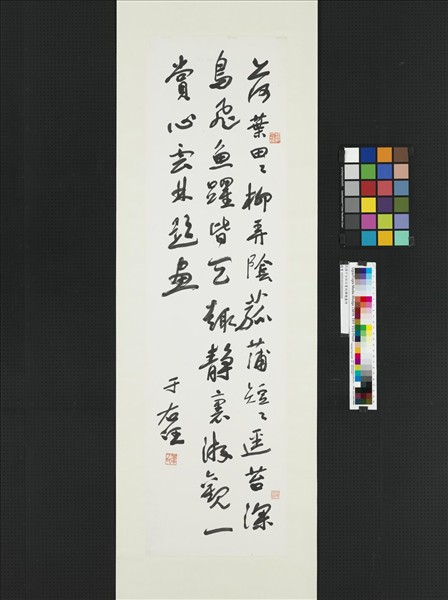 荷葉田〻柳弄陰菰蒲短〻徑苔深
鳥飛魚躍皆天趣靜裏游觀一
賞心雲林題畫
于右任